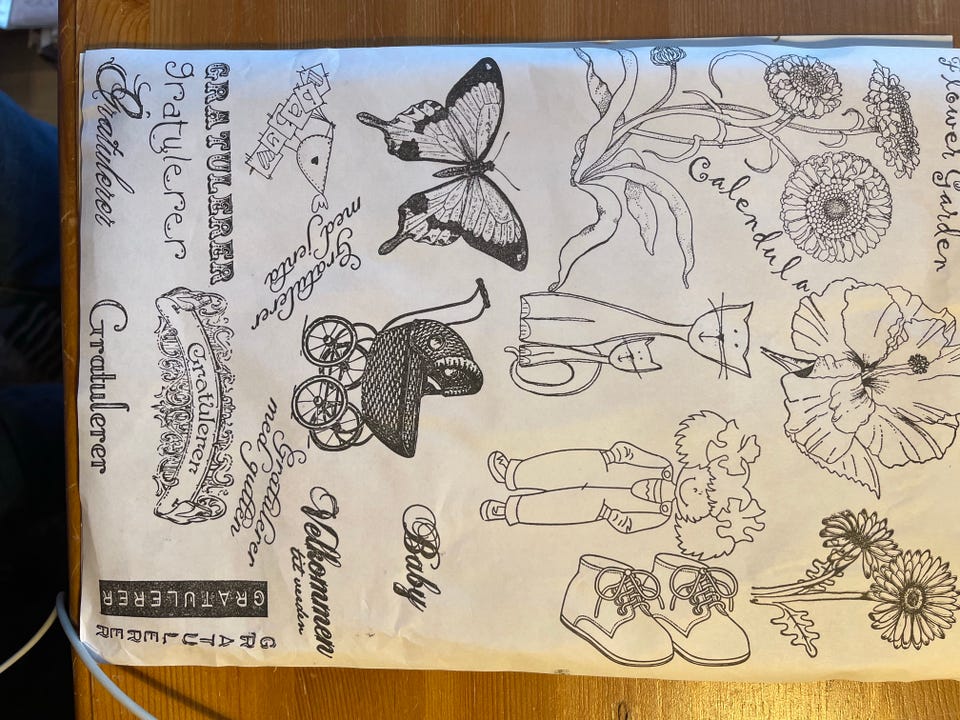 Flower Garden
Calendula
Baby
Gratulerer
med Jenta
Velkommen
til verden
Gratulerer
med gutten
GRATULERER
gratulerer
Gratulerer
Gratulerer
Gratulerer
GRATULERER
GRATULERER